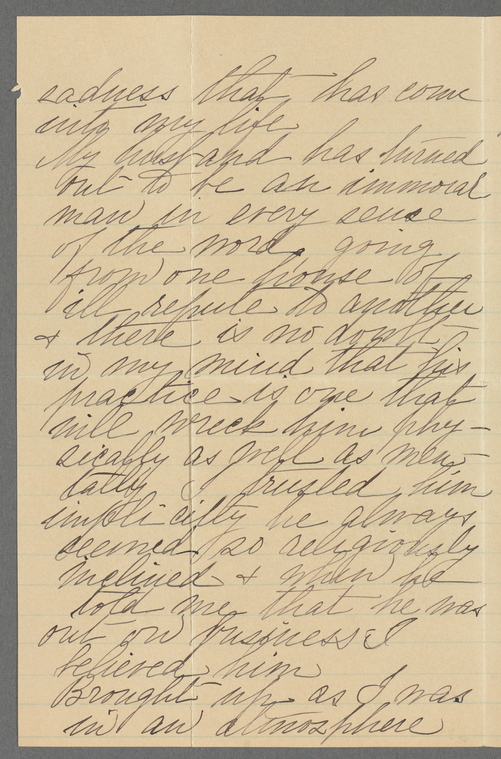 sadness that has come
into my life
My husband has turned
out to be an immoral
man in every sense
of the word, going
from one house of
ill repute to another
& there is no doubt
in my mind that his
practice is one that
will wreck him phy-
sically as well as men-
tally I trusted him
implicitly he always
seemed so religiously
inclined & when he
told me that he was
out on business I
believed him
Brought up as I was
in an atmosphere